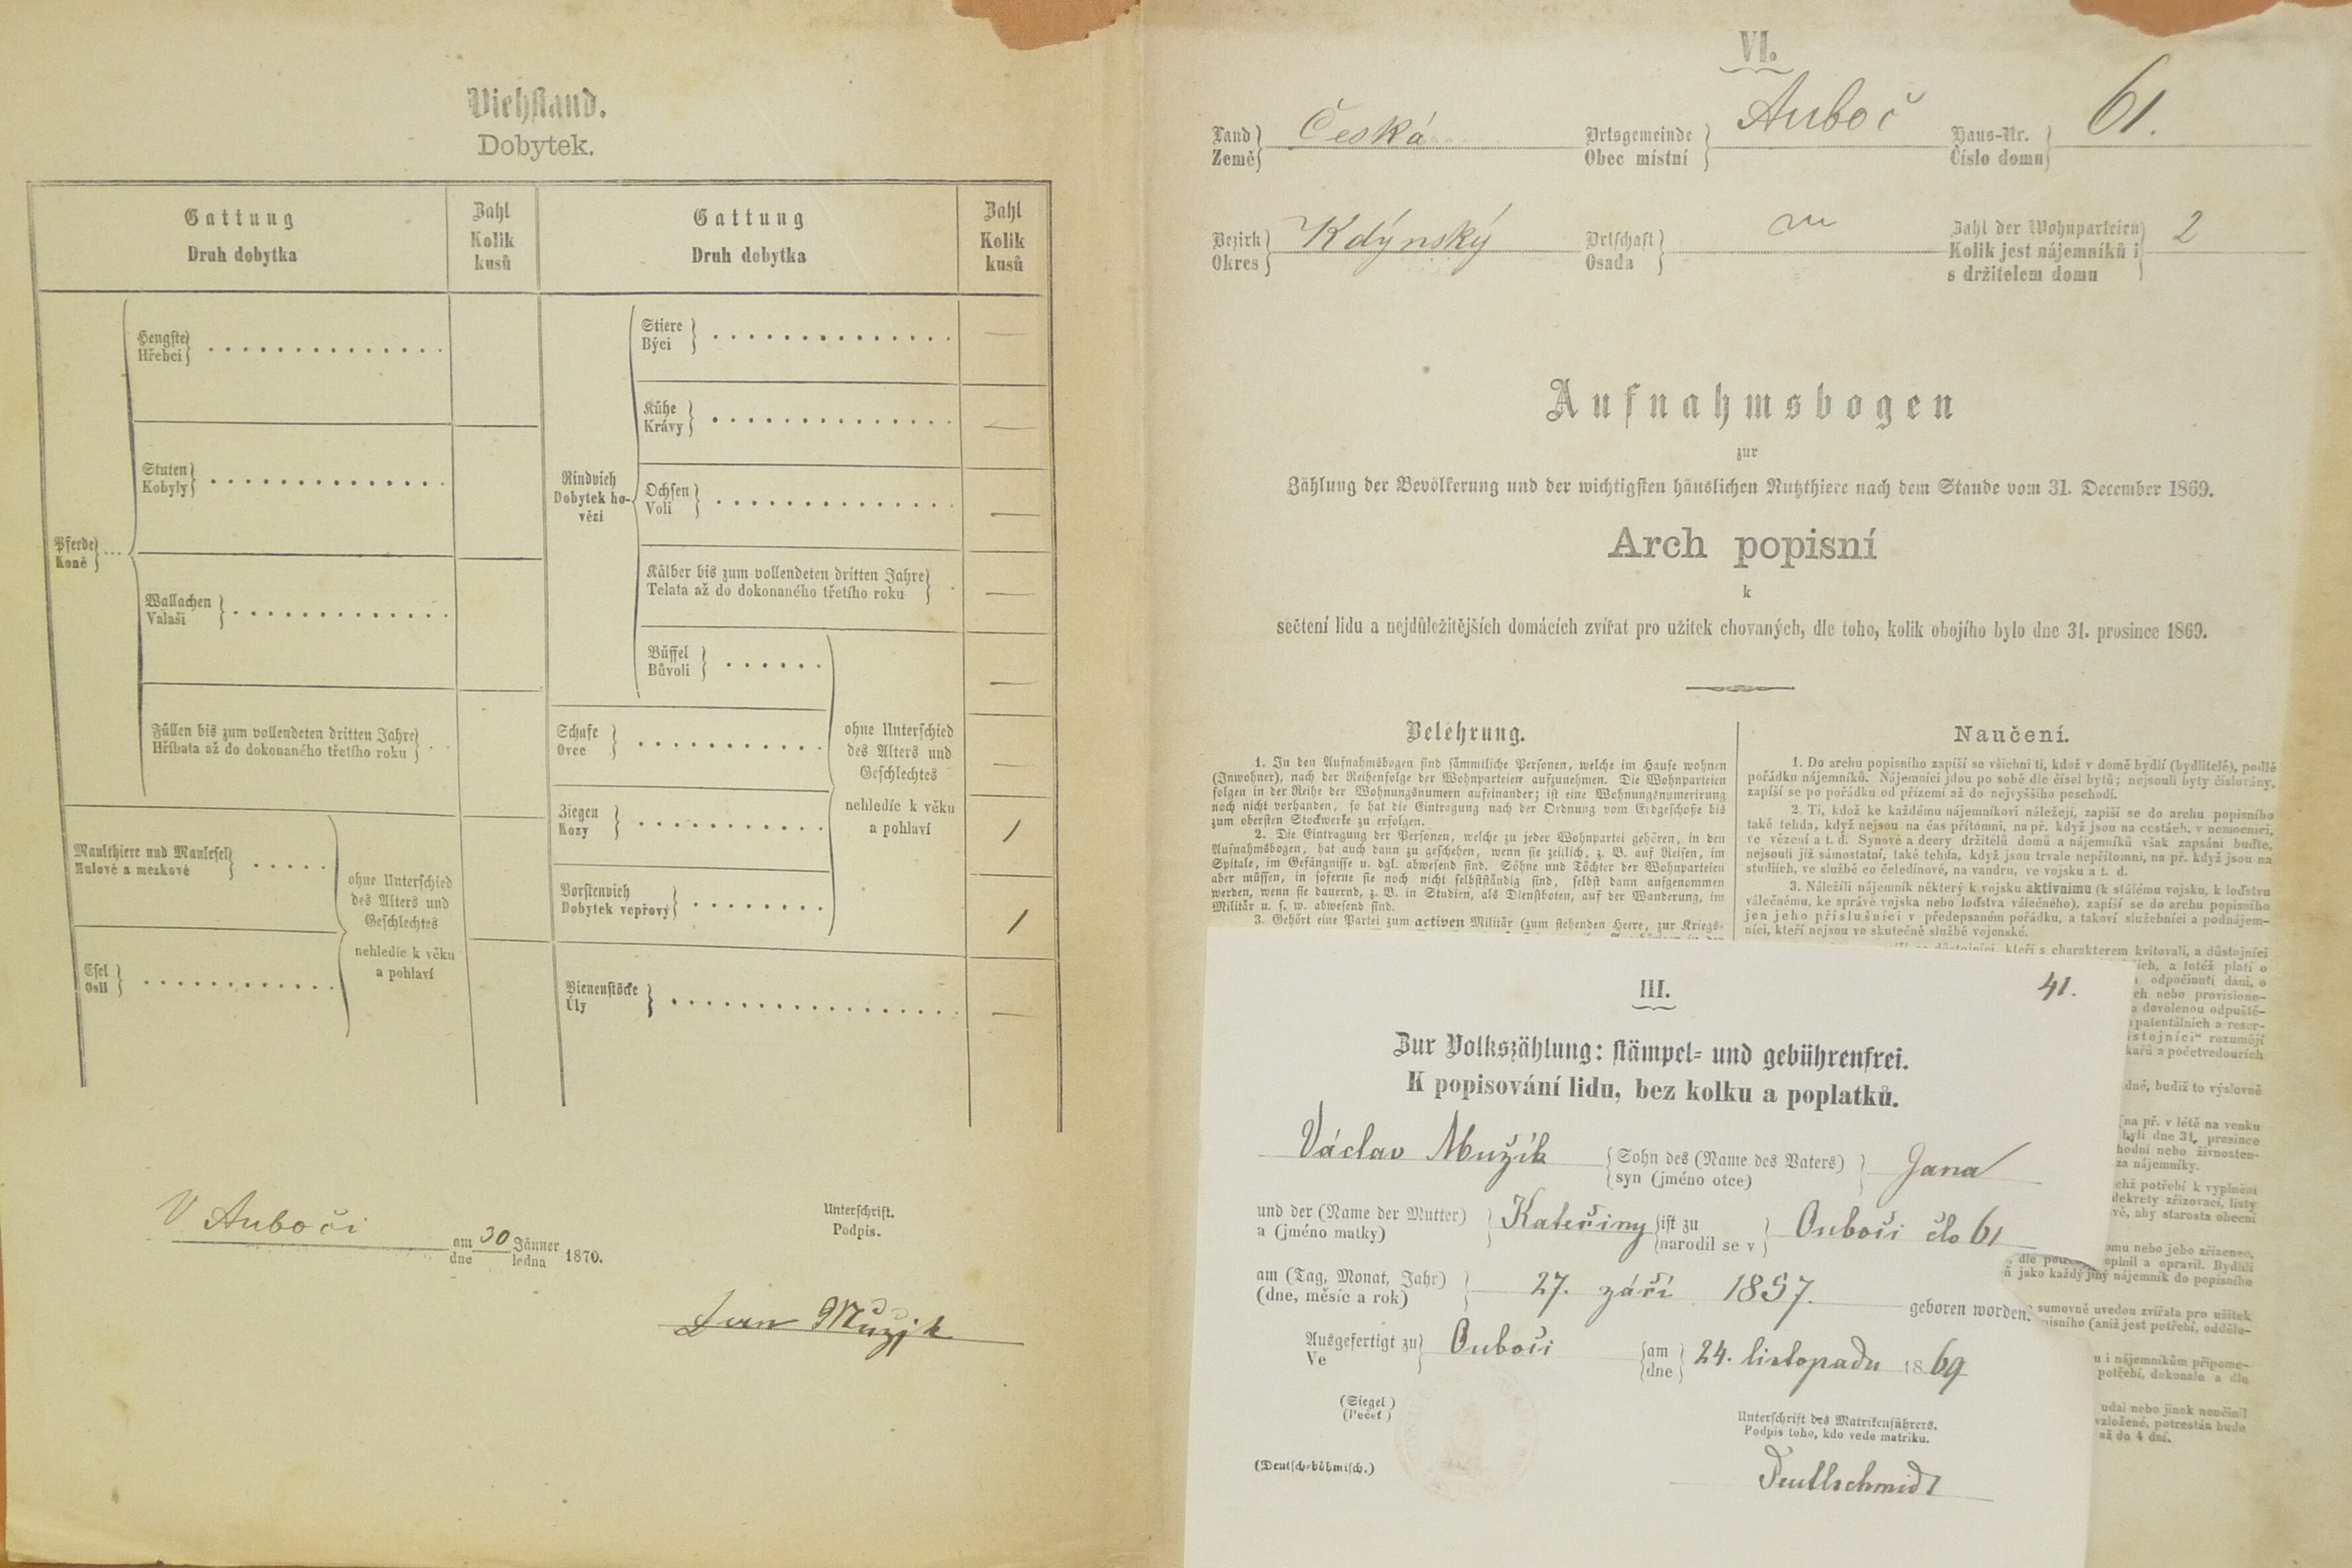 Viehstand.
Dobytek.
Gattung
Druh dobytka
Zahl
Kolik
kusů
Gattung
Druh dobytka
Zahl
Kolik
kusů
Pferde
Koně
Hengste
Hřebci
Stuten
Kobyly
Wallachen
Valaši
Füllen bis zum vollendeten dritten Jahre
Hříbata až do dokonaného třetího roku
Maulthiere und Maulesel
Mulové a mezkové
Esel
Osli
ohne Unterschied
des Alters und
Geschlechtes
nehledíc k věku
a pohlaví
Rindvieh
Dobytek ho-
vězí
Stiere
Býci
—
Kühe
Krávy
—
Ochsen
Voli
—
Kälber bis zum vollendeten dritten Jahre
Telata až do dokonaného třetího roku
—
Büffel
Bůvoli
—
Schafe
Ovce
—
Ziegen
Kozy
1
Borstenvieh
Dobytek vepřový
1
ohne Unterschied
des Alters und
Geschlechtes
nehledíc k věku
a pohlaví
Bienenstöcke
Úly
—
V Auboči am 30 Jänner 1870.
dne ledna
Unterschrift.
Podpis.
Jan Mužjk
VI.
Land Česká Ortsgemeinde Auboč Haus-Nr. 61.
Země Obec místní Číslo domu
Bezirk Kdýnský Ortschaft Zahl der Wohnparteien 2
Okres Osada Kolik jest nájemníků i
s držitelem domu
Aufnahmsbogen
zur
Zählung der Bevölkerung und der wichtigsten häuslichen Nutzthiere nach dem Stande vom 31. December 1869.
Arch popisní
k
sečtení lidu a nejdůležitějších domácích zvířat pro užitek chovaných, dle toho, kolik obojího bylo dne 31. prosince 1869.
Belehrung.
1. In den Aufnahmsbogen sind sämmtliche Personen, welche im Hause wohnen
(Inwohner), nach der Reihenfolge der Wohnparteien aufzunehmen. Die Wohnparteien
folgen in der Reihe der Wohnungsnumern aufeinander; ist eine Wohnungsnumerirung
noch nicht vorhanden, so hat die Eintragung nach der Ordnung vom Erdgeschoße bis
zum obersten Stockwerke zu erfolgen.
2. Die Eintragung der Personen, welche zu jeder Wohnpartei gehören, in den
Aufnahmsbogen, hat auch dann zu geschehen, wenn sie zeitlich, z. B. auf Reisen, im
Spitale, im Gefängnisse u. dgl. abwesend sind. Söhne und Töchter der Wohnparteien
aber müssen, in soferne sie noch nicht selbstständig sind, selbst dann aufgenommen
werden, wenn sie dauernd, z. B. in Studien, als Dienstboten, auf der Wanderung, im
Militär u. s. w. abwesend sind.
3. Gehört eine Partei zum activen Militär (zum stehenden Heere, zur Kriegs-
Naučení.
1. Do archu popisního zapíší se všichni ti, kdož v domě bydlí (bydlitelé), podlé
pořádku nájemníků. Nájemníci jdou po sobě dle čísel bytů; nejsouli byty číslovány,
zapíší se po pořádku od přízemí až do nejvyššího poschodí.
2. Ti, kdož ke každému nájemníkovi náležejí, zapíší se do archu popisního
také tehda, když nejsou na čas přítomni, na př. když jsou na cestách, v nemocnici,
ve vězení a t. d. Synové a dcery držitelů domu a nájemníků však zapsáni buďte,
nejsouli již sámostatní, také tehda, když jsou trvale nepřítomni, na př. když jsou na
studiích, ve službě co čeledínové, na vandru, ve vojsku a t. d.
3. Náležíli nájemník některý k vojsku aktivnímu (k stálému vojsku, k loďstvu
válečnému, ke správě vojska nebo loďstva válečného), zapíší se do archu popisního
jen jeho příslušníci v předepsaném pořádku, a takoví služebníci a podnájem-
níci, kteří nejsou ve skutečné službě vojenské.
důstojníci, kteří s charakterem kvitovali, a důstojníci
ich, a totéž platí o
odpočinutí dáni, o
ch nebo provisione-
dovolenou odpuště-
patentálních a reser-
istojníci" rozumějí
kařů a početvedoucích
dné, budiž to výslovně
na př. v létě na venku
byli dne 31. prosince
hodní nebo živnosten-
za nájemníky.
chž potřebí k vyplnění
dekrety zřizovací, listy
vě, aby starosta obecní
omu nebo jeho zřízenec,
oplnil a opravil. Bydlíli
jako každý jiný nájemník do popisního
sumovně uvedou zvířata pro užitek
pisního (aniž jest potřebí, odděle-
u i nájemníkům připome-
potřebí, dokonale a dle
udal nebo jinak neučinil
vzložené, potrestán bude
až do 4 dní.
III.
41.
Zur Volkszählung: stämpel- und gebührenfrei.
K popisování lidu, bez kolku a poplatků.
Václav Mužík Sohn des (Name des Vaters) Jana
syn (jméno otce)
und der (Name der Mutter) Kateřiny ist zu Ouboči člo 61
a (jméno matky) narodil se v
am (Tag, Monat, Jahr) 27. září 1857. geboren worden.
(dne, měsíc a rok)
Ausgefertigt zu Ouboči am 24. listopadu 1869
Ve dne
(Siegel)
(Pečeť)
Unterschrift des Matrikenführers.
Podpis toho, kdo vede matriku.
(Deutsch-böhmisch.)